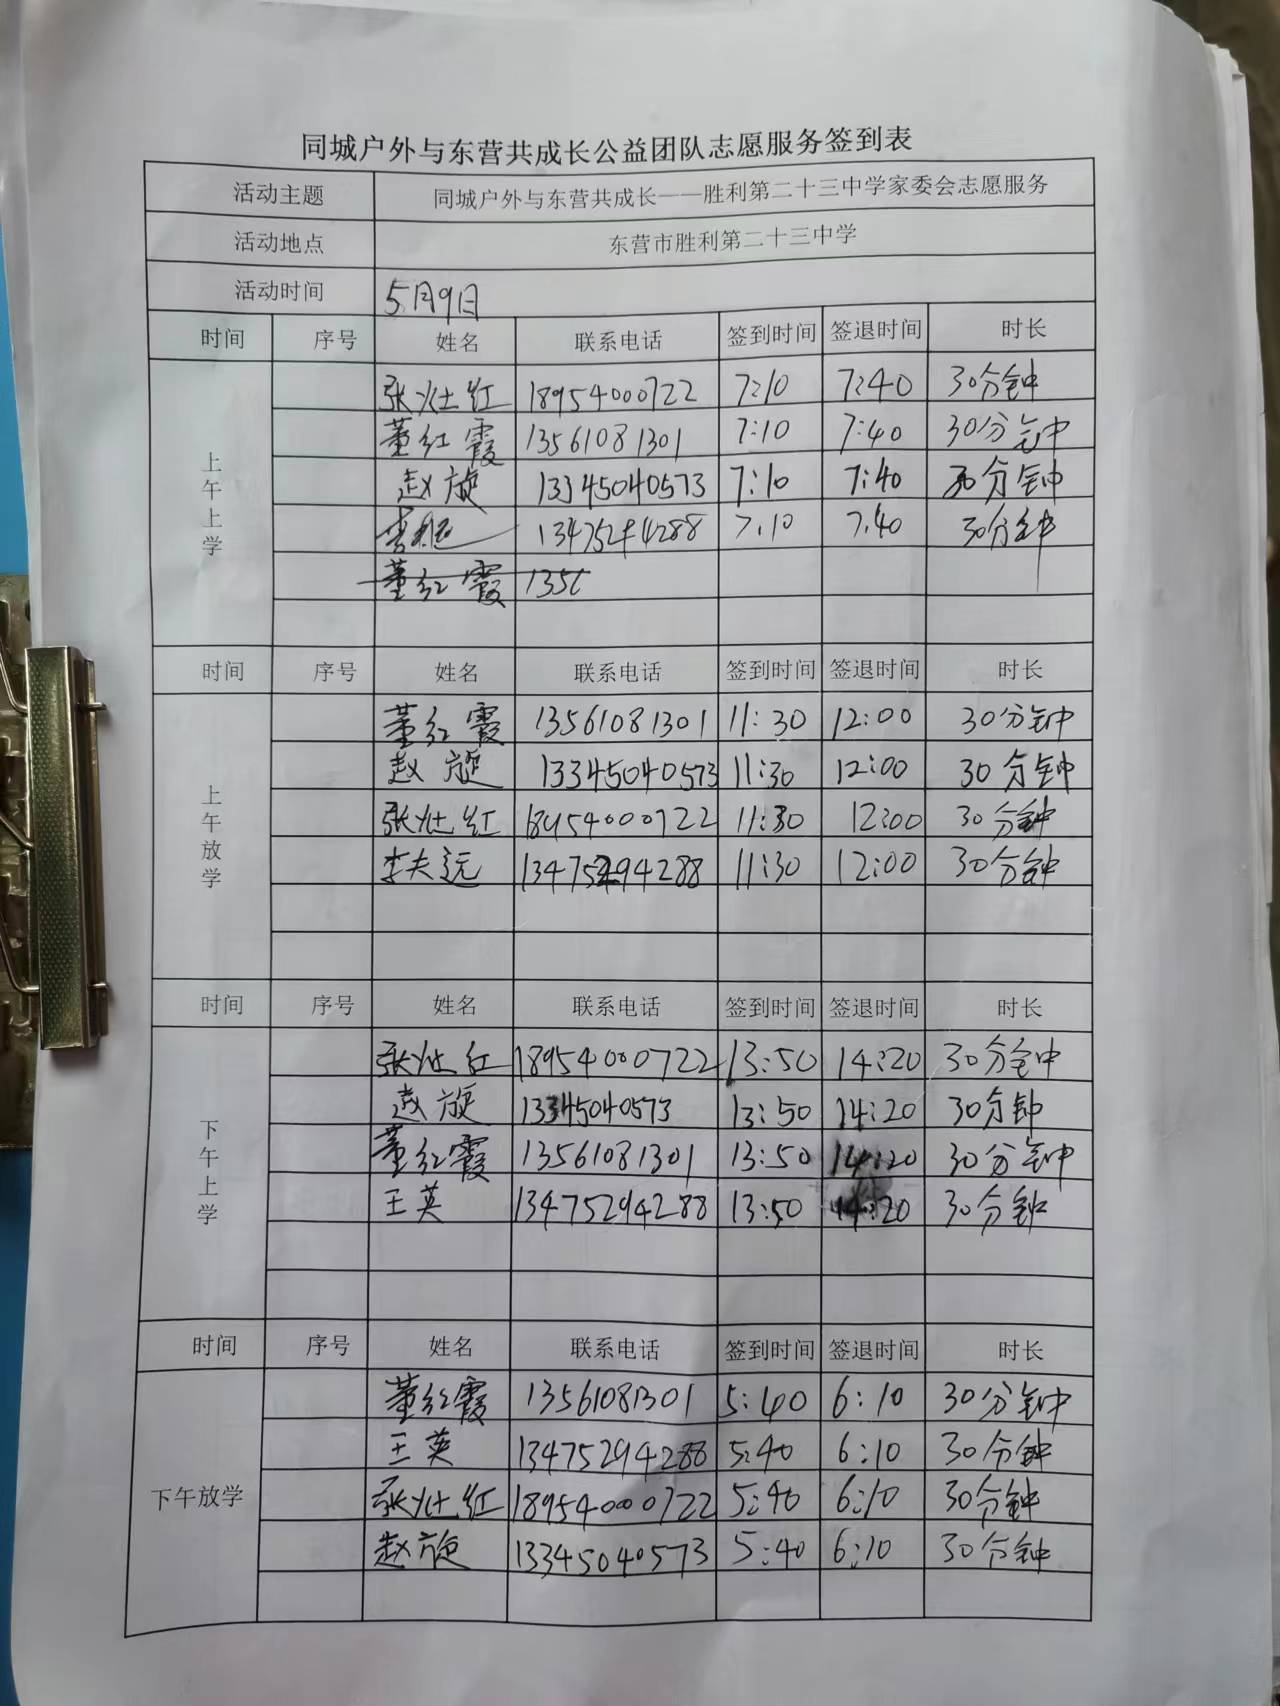 同城户外与东营共成长公益团队志愿服务签到表
活动主题 同城户外与东营共成长——胜利第二十三中学家委会志愿服务
活动地点 东营市胜利第二十三中学
活动时间 5月9日
时间 序号 姓名 联系电话 签到时间 签退时间 时长
上午上学
张灶红 18954000722 7:10 7:40 30分钟
董红霞 13561081301 7:10 7:40 30分钟
赵旋 13345040573 7:10 7:40 30分钟
7:10 7:40 30分钟
董红霞 1356
时间 序号 姓名 联系电话 签到时间 签退时间 时长
上午放学
董红霞 13561081301 11:30 12:00 30分钟
赵旋 13345040573 11:30 12:00 30分钟
张灶红 18954000722 11:30 12:00 30分钟
李夫远 13475294288 11:30 12:00 30分钟
时间 序号 姓名 联系电话 签到时间 签退时间 时长
下午上学
张灶红 18954000722 13:50 14:20 30分钟
赵旋 13345040573 13:50 14:20 30分钟
董红霞 13561081301 13:50 14:20 30分钟
王英 13475294288 13:50 14:20 30分钟
时间 序号 姓名 联系电话 签到时间 签退时间 时长
下午放学
董红霞 13561081301 5:40 6:10 30分钟
王英 13475294288 5:40 6:10 30分钟
张灶红 18954000722 5:40 6:10 30分钟
赵旋 13345040573 5:40 6:10 30分钟